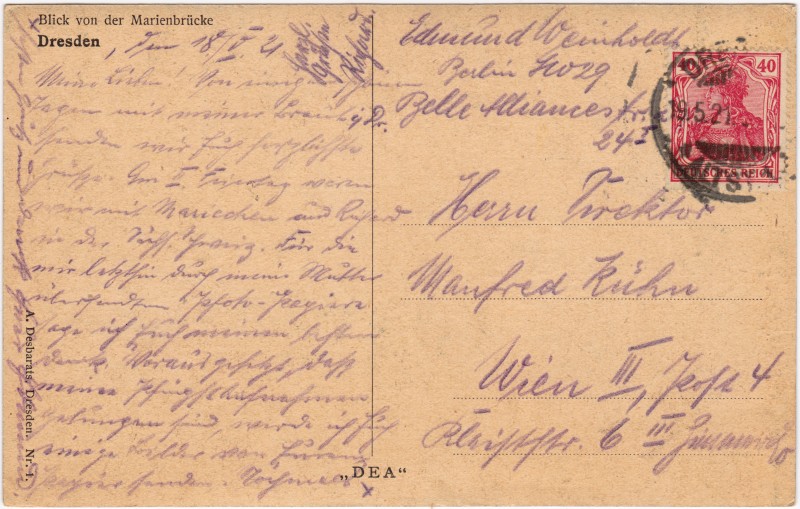 Blick von der Marienbrücke
Dresden, den 18/V 21
Meine Lieben! Von einigen schönen
Tagen mit meiner Braut i. Dr.
senden wir Euch herzlichste
Grüße. Am II. Feiertag waren
wir mit Mariechen und Richard
in der Sächs. Schweiz. Für die
mir letzthin durch meine Mutter
übersandten Photo-Papiere
sage ich Euch meinen besten
Dank. Vorausgesetzt, daß
meine Pfingstaufnahmen
gelungen sind, werde ich Euch
einige Bilder von Eurem
Papier senden. Nochmals
Herzl.
Grüße
Richard
Edmund Weinholdt
Berlin SW 29
Belle Alliancestr.
24 I
Herrn Direktor
Manfred Kühn
Wien III, Post 4
Kleiststr. 6 III
40
DEUTSCHES REICH
DRES
19.5.21
A. Desbarats, Dresden. Nr. 1.
„DEA“